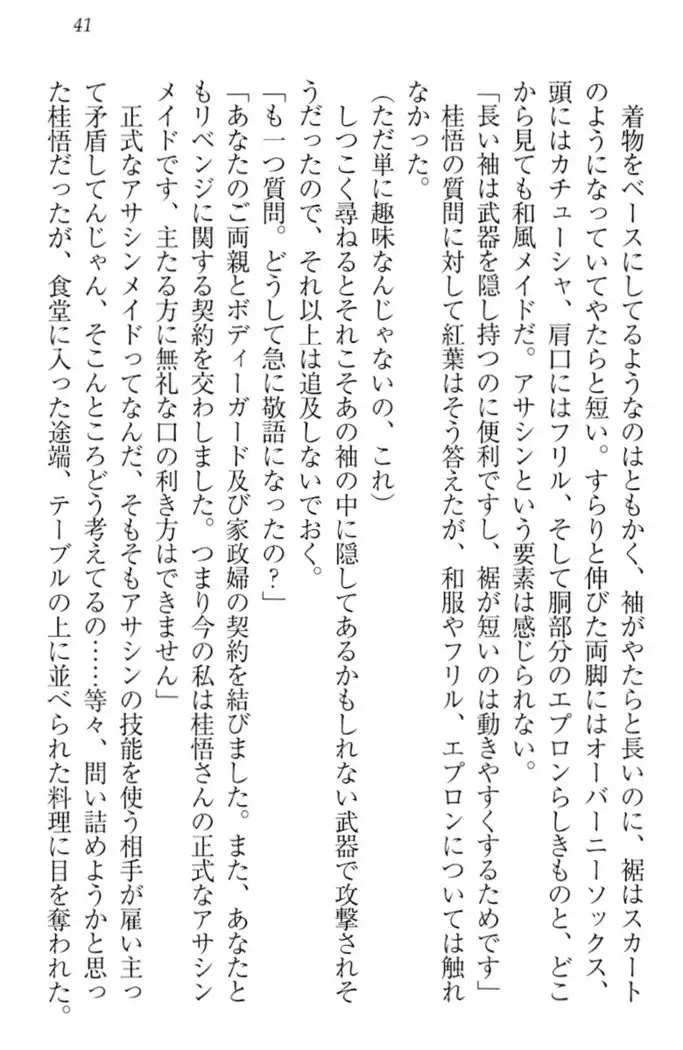 41
着物をベースにしてるようなのはともかく、袖がやたらと長いのに、裾はスカート
のようになっていてやたらと短い。すらりと伸びた両脚にはオーバーニーソックス、
頭にはカチューシャ、肩口にはフリル、そして胴部分のエプロンらしきものと、どこ
から見ても和風メイドだ。アサシンという要素は感じられない。
「長い袖は武器を隠し持つのに便利ですし、裾が短いのは動きやすくするためです」
桂悟の質問に対して紅葉はそう答えたが、和服やフリル、エプロンについては触れ
なかった。
（ただ単に趣味なんじゃないの、これ）
しつこく尋ねるとそれこそあの袖の中に隠してあるかもしれない武器で攻撃されそ
うだったので、それ以上は追及しないでおく。
「も一つ質問。どうして急に敬語になったの？」
「あなたのご両親とボディーガード及び家政婦の契約を結びました。また、あなたと
もリベンジに関する契約を交わしました。つまり今の私は桂悟さんの正式なアサシン
メイドです、主たる方に無礼な口の利き方はできません」
正式なアサシンメイドってなんだ、そもそもアサシンの技能を使う相手が雇い主っ
て矛盾してんじゃん、そこんところどう考えてるの……等々、問い詰めようかと思っ
た桂悟だったが、食堂に入った途端、テーブルの上に並べられた料理に目を奪われた。